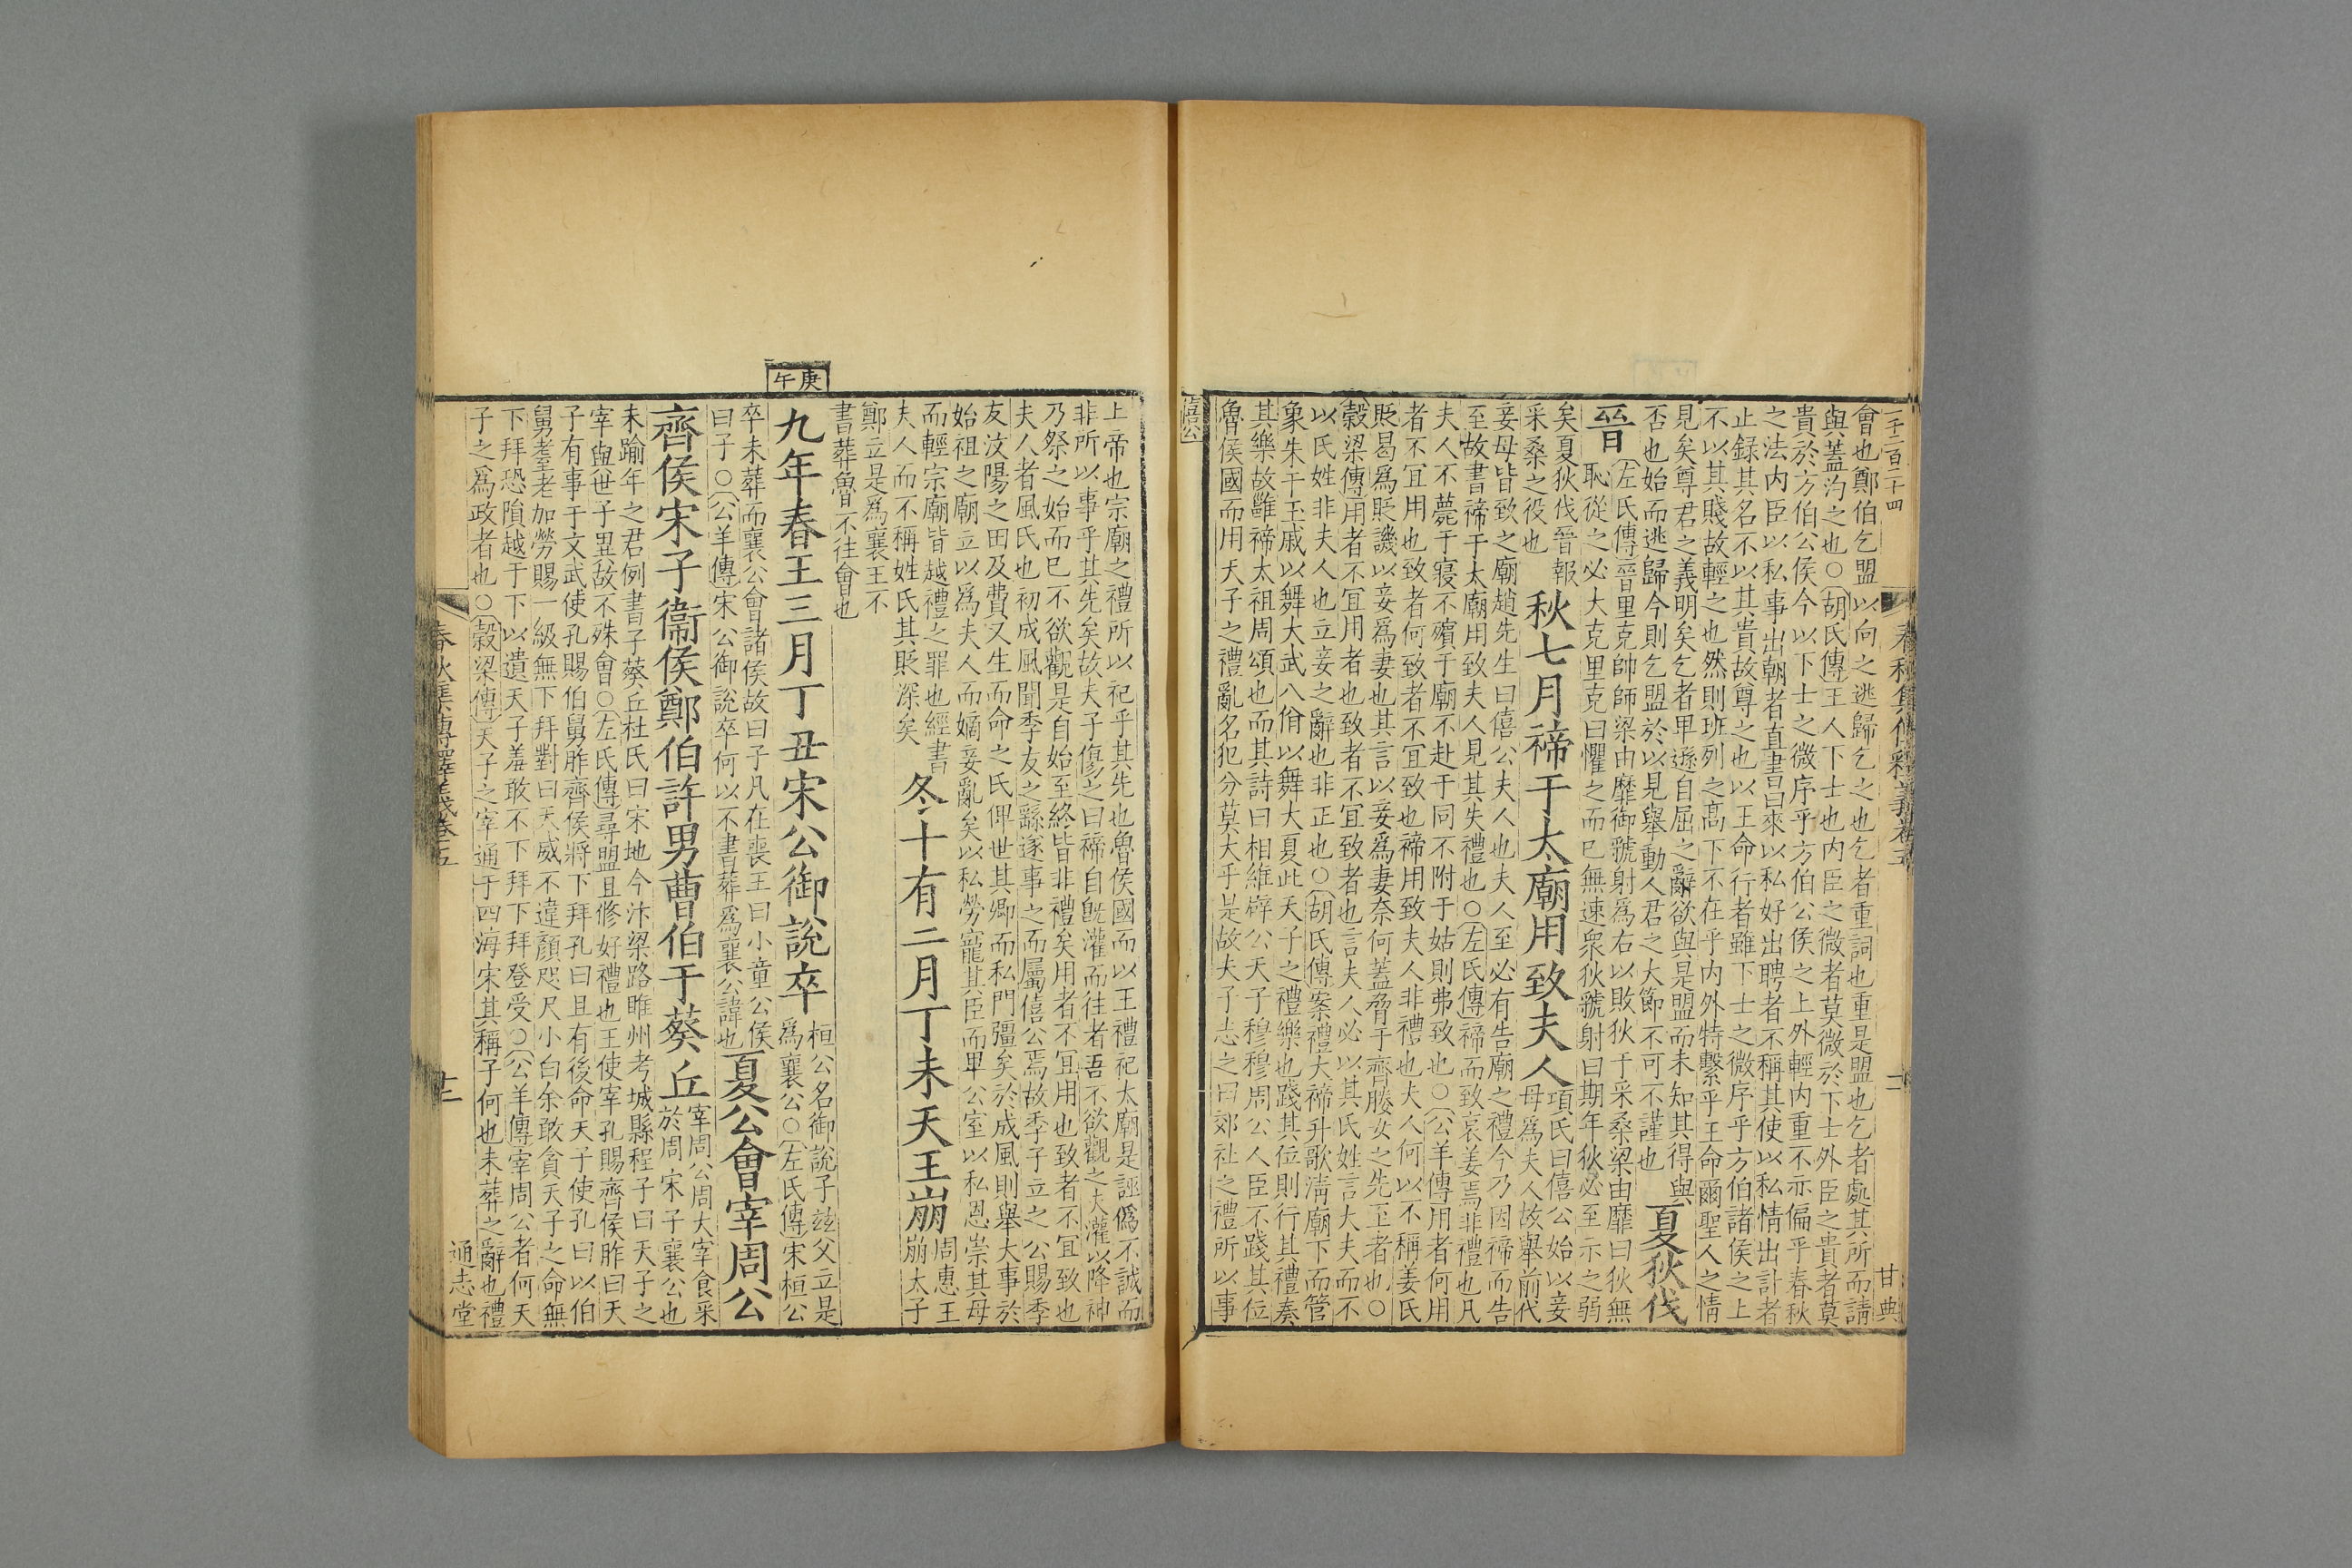 一千二百二十四
會也鄭伯乞盟以向之逃歸乞之也乞者重詞也重是盟也乞者處其所而請
與蓋汋之也○胡氏傳王人下士也內臣之微者莫微於下士外臣之貴者莫
貴於方伯公侯今以下士之微序乎方伯公侯之上外輕內重不示偏乎春秋
之法內臣以私事出朝者直書曰來以私好出聘者不稱其使以私情出計者
止録其名不以其貴故尊之也以王命行者雖下士之微序乎方伯諸侯之上
不以其賤故輕之也然則班列之髙下不在乎內外特繫乎王命爾聖人之情
見矣尊君之義明矣乞者卑遜自屈之辭欲與是盟而未知其得與
否也始而逃歸今則乞盟於以見舉動人君之大節不可不謹也
夏狄伐
晉
左氏傳晉里克帥師梁由靡御虢射為右以敗狄于采桑梁由靡曰狄無
恥從之必大克里克曰懼之而已無速衆狄虢射曰期年狄必至示之弱
矣夏狄伐晉報
采桑之役也
秋七月禘于太廟用致夫人
項氏曰僖公始以妾
母為夫人故舉前代
妾母皆致之廟趙先生曰僖公夫人也夫人至必有告廟之禮今乃因禘而告
至故書禘于太廟用致夫人見其失禮也○左氏傳禘而致哀姜焉非禮也凡
夫人不薨于寢不殯于廟不赴于同不附于姑則弗致也○公羊傳用者何用
者不宜用也致者何致者不宜致也禘用致夫人非禮也夫人何以不稱姜氏
貶曷為貶譏以妾為妻也其言以妾為妻奈何蓋脅于齊媵女之先至者也○
穀梁傳用者不宜用者也致者不宜致者也言夫人必以其氏姓言夫人而不
以氏姓非夫人也立妾之辭也非正也○胡氏傳案禮大禘升歌清廟下而管
象朱干玉戚以舞大武八佾以舞大夏此天子之禮樂也踐其位則行其禮奏
其樂故雝禘太祖周頌也而其詩曰相維辟公天子穆穆周公人臣不踐其位
魯侯國而用天子之禮亂名犯分莫大乎是故夫子志之曰郊社之禮所以事
僖公
春秋集傳釋義卷五
甘典
上帝也宗廟之禮所以祀乎其先也魯侯國而以王禮祀太廟是誣僞不誠而
非所以事乎其先矣故夫子傷之曰禘自旣灌而往者吾不欲觀之夫灌以降神
乃祭之始而已不欲觀是自始至終皆非禮矣用者不宜用也致者不宜致也
夫人者風氏也初成風聞季友之繇遂事之而屬僖公焉故季子立之公賜季
友汶陽之田及費又生而命之氏俾世其卿而私門彊矣於成風則舉大事於
始祖之廟立以為夫人而嫡妾亂矣以私勞寵其臣而卑公室以私恩崇其母
而輕宗廟皆越禮之罪也經書
夫人而不稱姓氏其貶深矣
冬十有二月丁未天王崩
周惠王
崩太子
鄭立是為襄王不
書葬魯不往會也
庚午
九年春王三月丁丑宋公御說卒
桓公名御說子玆父立是
為襄公○左氏傳宋桓公
卒未葬而襄公會諸侯故曰子凡在喪王曰小童公侯
曰子○公羊傳宋公御說卒何以不書葬為襄公諱也
夏公會宰周公
齊侯宋子衞侯鄭伯許男曹伯于葵丘
宰周公周大宰食采
於周宋子襄公也
未踰年之君例書子葵丘杜氏曰宋地今汴梁路睢州考城縣程子曰天子之
宰與世子異故不殊會○左氏傳尋盟且修好禮也王使宰孔賜齊侯胙曰天
子有事于文武使孔賜伯舅胙齊侯將下拜孔曰且有後命天子使孔曰以伯
舅耋老加勞賜一級無下拜對曰天威不違顏咫尺小白余敢貪天子之命無
下拜恐隕越于下以遺天子羞敢不下拜下拜登受○公羊傳宰周公者何天
子之為政者也○穀梁傳天子之宰通于四海宋其稱子何也未葬之辭也禮
春秋集傳釋義卷五
通志堂